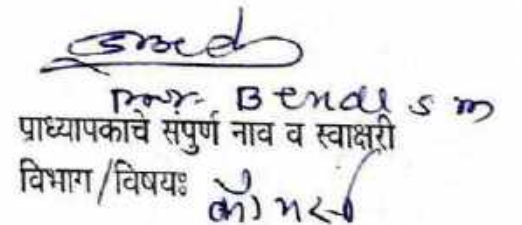 Prof. Bende S m
प्राध्यापकाचे संपुर्ण नाव व स्वाक्षरी
विभाग/विषयः कॉमर्स